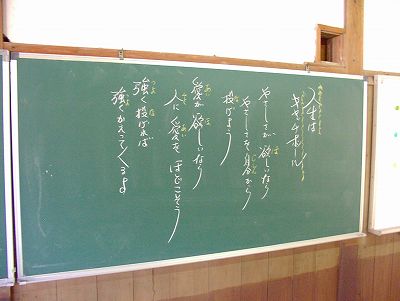 人生は
キャッチボール
やさしさが欲しいなら
やさしさを自分から
投げよう
愛が欲しいなら
人に愛をほどこそう
強く投げれば
強くかえってくるよ